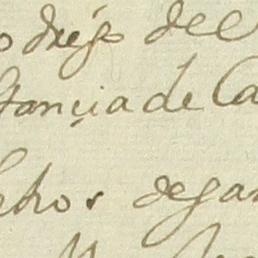 o diego del
stançia de Ca
chos degan